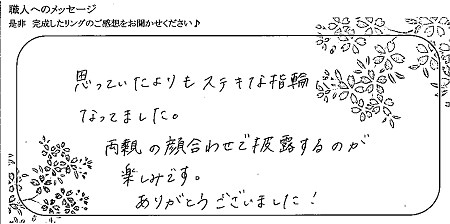 職人へのメッセージ
是非 完成したリングのご感想をお聞かせください♪
思っていたよりもステキな指輪
なってました。
両親の顔合わせで披露するのが
楽しみです。
ありがとうございました！